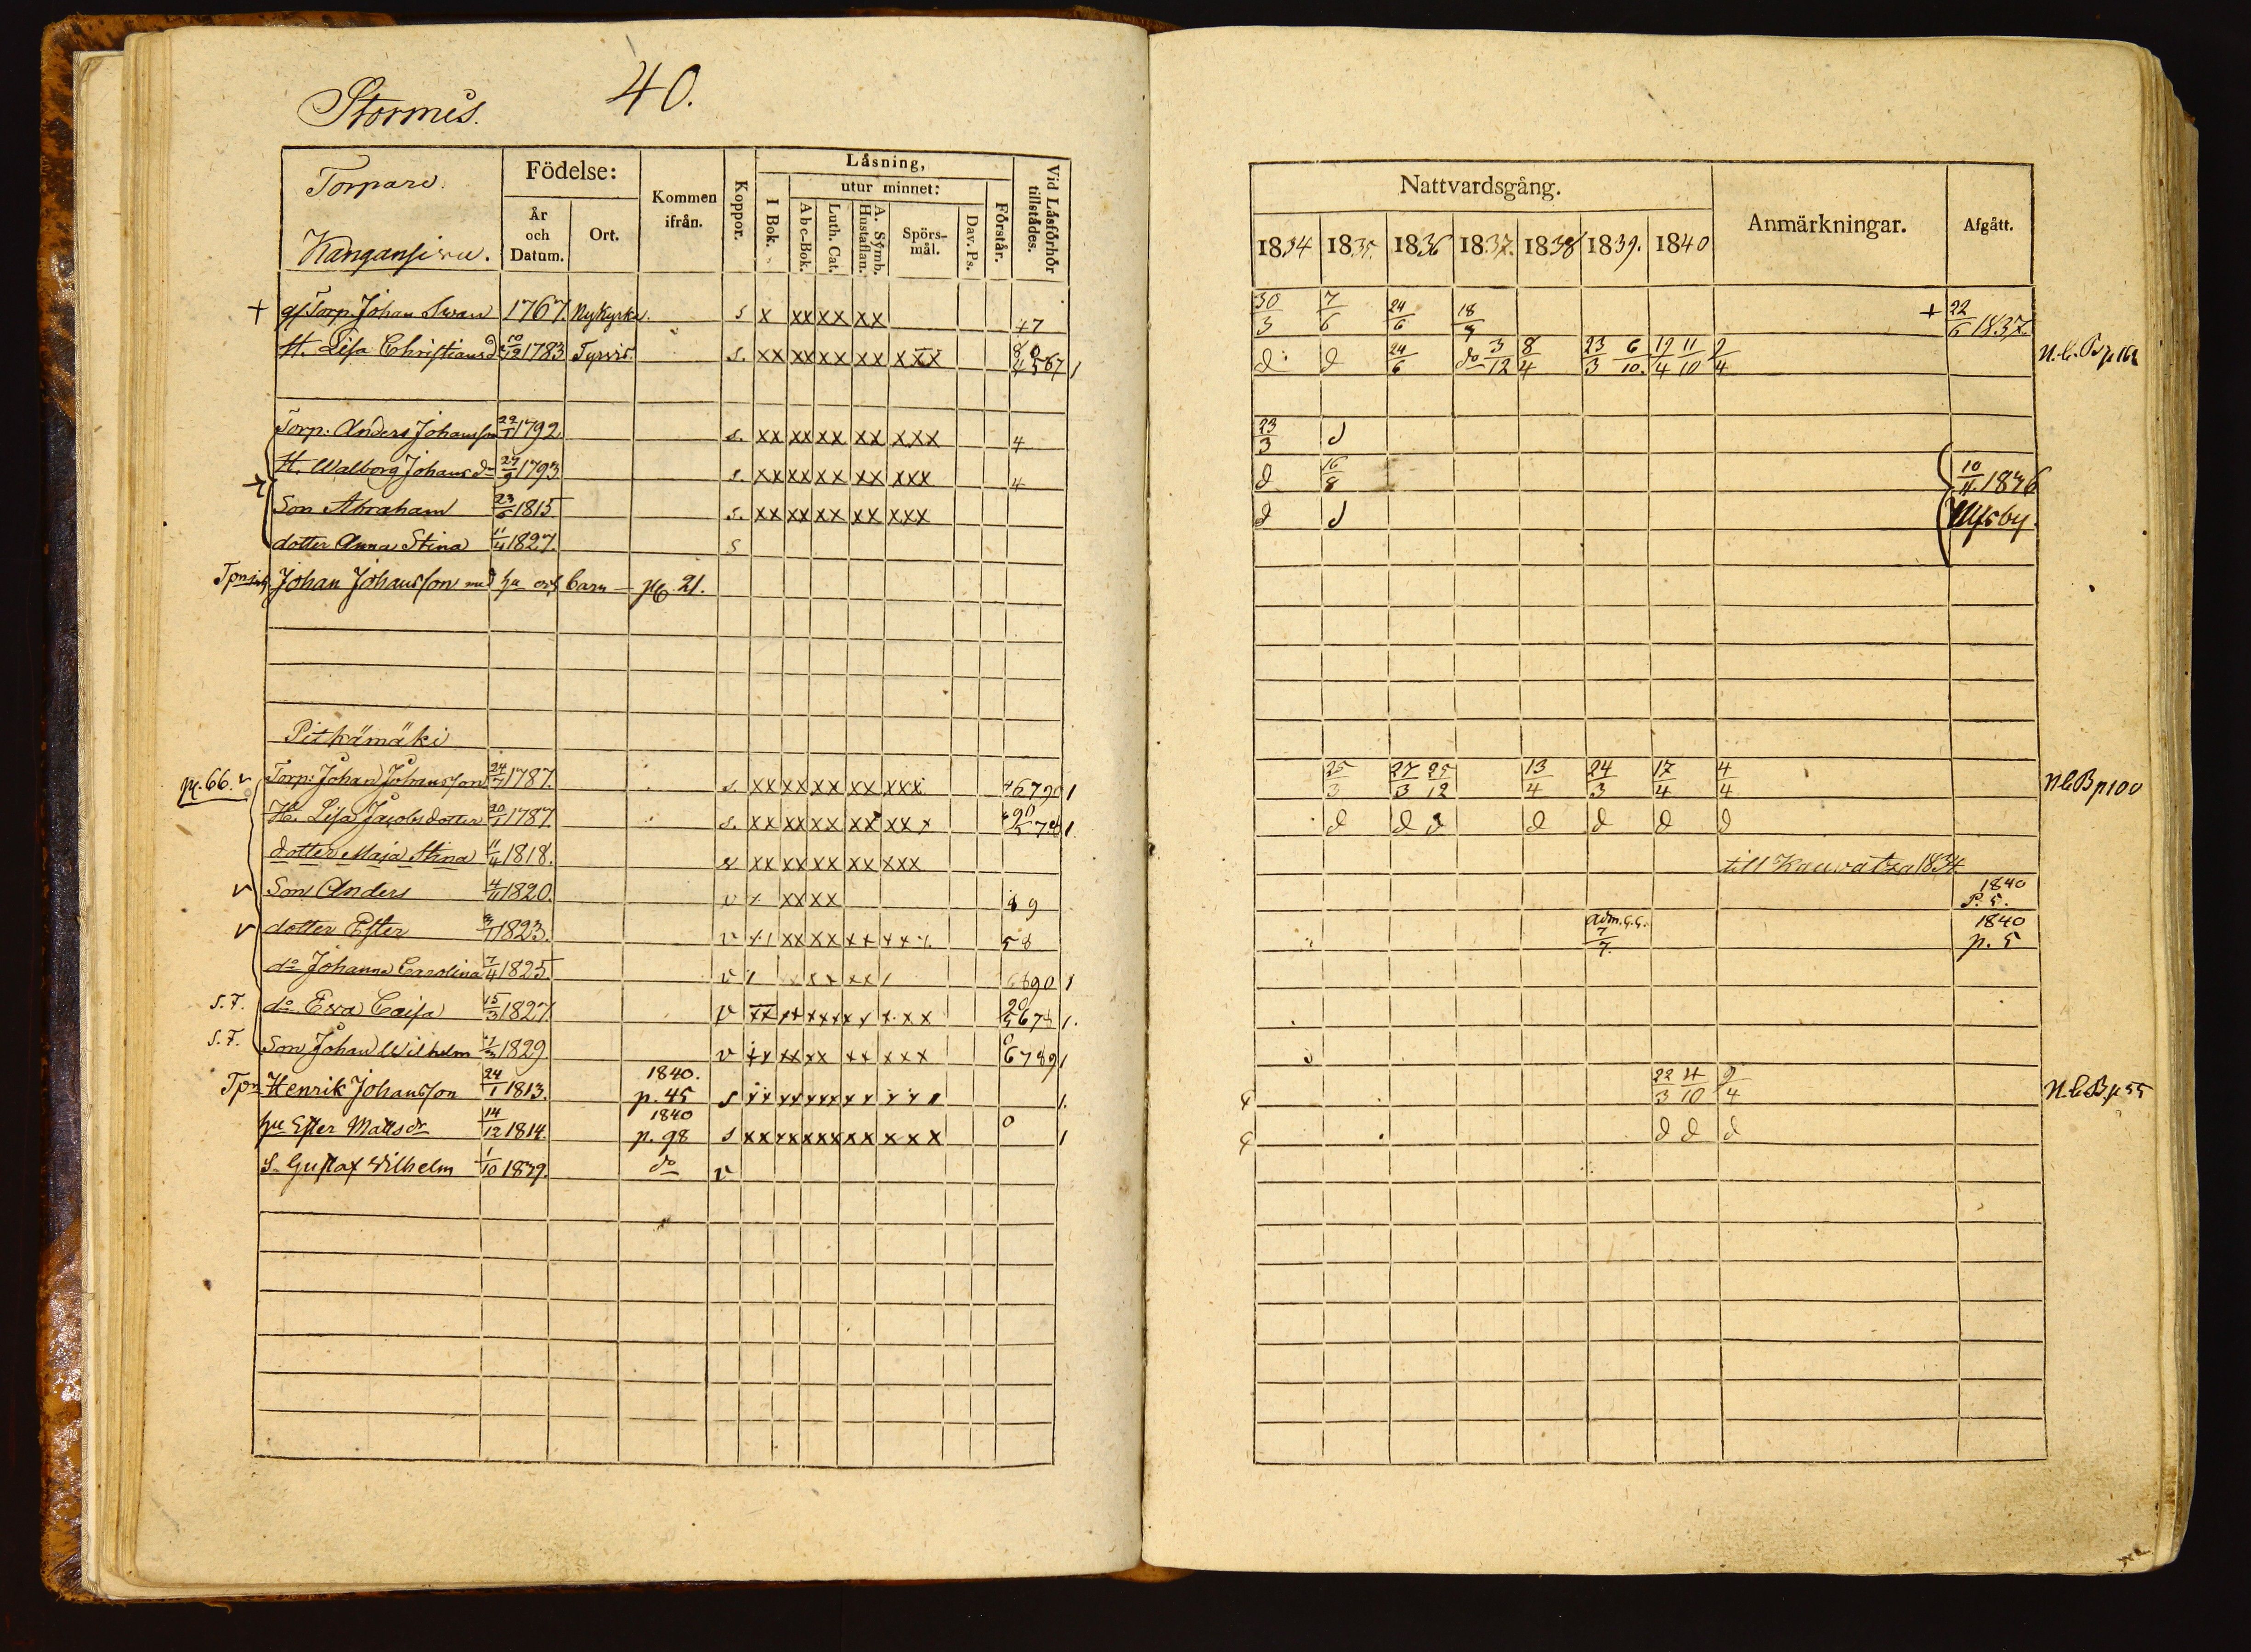 Stormis.
40.
Torpare.
Kangansivu.
Födelse:
År och Datum.
Ort.
Kommen ifrån.
Koppor.
Läsning,
I Bok.
utur minnet:
Abc-Bok.
Luth. Cat.
A. Symb. Hustaflan.
Spörs-mål.
Dav. Ps.
Förstår.
Vid Läsförhör tillstädes.
Nattvardsgång.
1834 1835. 1836 1837. 1838 1839. 1840
Anmärkningar.
Afgått.
+ gf. Torp. Johan Swan 1767. Nykyrka. s x xx xx xx 47 30/3 7/6 24/6 + 22/6 1837.
H. Lisa Christiansd 1783 Tyrvis. s. xx xx xx xx xxx d: d 24/6 do 3/12 8/4 23/3 6/10. 11/10 N.C.B p 162
Torp. Anders Johansson 22/1 1792. s. xx xx xx xx xxx 4 23/3 d
H. Walborg Johansdr 27/9 1793 s. xx xx xx xx xxx 4 d 16/8 10/11 1836
Son Abraham 23/6 1815. s. xx xx xx xx xxx d d
dotter Anna Stina 11/4 1827. s
Johan Johansson med hu och barn — pg. 21.
Pitkämäki
pg. 66. v Torp: Johan Johansson 24/7 1787. s. xx xx xx xx xxx 46790 1 25/3 27/3 25/12 13/4 24/3 17/4 4/4 N C B p 100
H. Lisa Jacobsdotter 20/1 1787. s. xx xx xx xx xxx 1. d d d d d d d
dotter Maja Stina 11/4 1818. s. xx xx xx xx xxx till Kauvatza 1834.
v Son Anders 4/11 1820. v x xx xx 89 1840 P. 5.
v dotter Ester 1823. v xx xx xx xx 58 adm. 7/7. 1840 p. 5
do Johanna Carolina 7/4 1825. v 6890 1
S. F. do Eva Caisa 15/3 1827. v xx xx xx xx xxx 1.
S. F. Son Johan Wilhelm 1/3 1829. v xx xx xx xx xxx 6789 1
Tpr Henrik Johansson 24/1 1813. 1840. p. 45 s 1. 22/3 4/10 9/4 N.C.B. p 55
hu Ester Mattsdr 14/12 1814. 1840 p. 98 s xx xx xx xx xxx 0 1 d d d
S. Gustaf Wilhelm 1/10 1839. do v